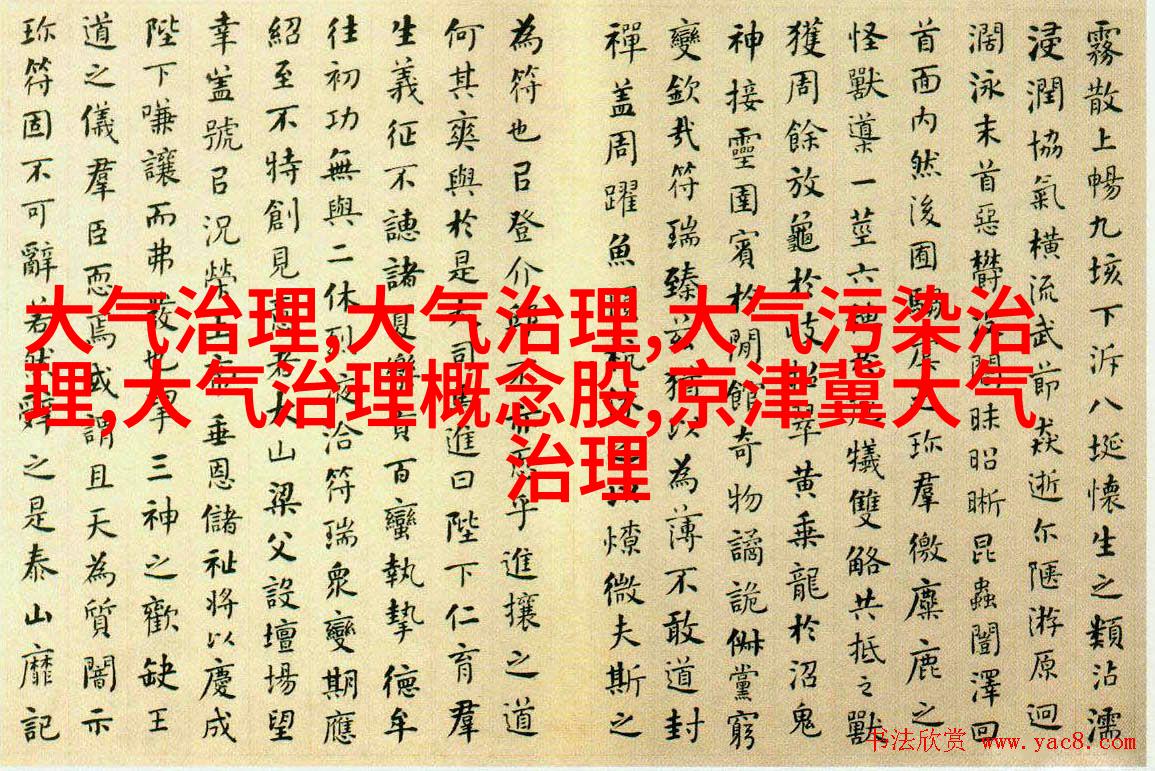 大气治理,大气治理,大气污染治
理,大气治理概念股,京津冀大气
治理
霧散上暢九垓下泝八埏懷生之類沾濡
浸潤協氣橫流武節猋逝尒陿游原迥
濶泳末首惡欝闇昧昭晰昆蟲闓澤回
首面内然後囿之珍羣徼麋鹿之
怪獸導一莖六犧雙觡共抵之獸
獲周餘放龜於岐翠黄乗龍於沼鬼
神接靈圉賓於閒館奇物譎詭俶黨窮
變欽哉符瑞臻兹猶以為薄不敢道封
禪盖周躍魚之燎微夫斯之
為符也㠯登介不乎進攘之道
何其爽與於是司進曰陛下仁育羣
生義征不譓諸夏樂貢百蠻執摯德牟
徃初功無與二休烈液洽符瑞衆變期應
紹至不特創見意者太山梁父設壇場望
幸盖號㠯况榮上帝垂恩儲祉將以慶成
陛下嗛讓而弗發也三神之歡缺王
道之儀羣臣恧焉或謂且天為質闇示
珍符固不可辭若然辭之是泰山靡記
书法欣赏 www.yac8.com